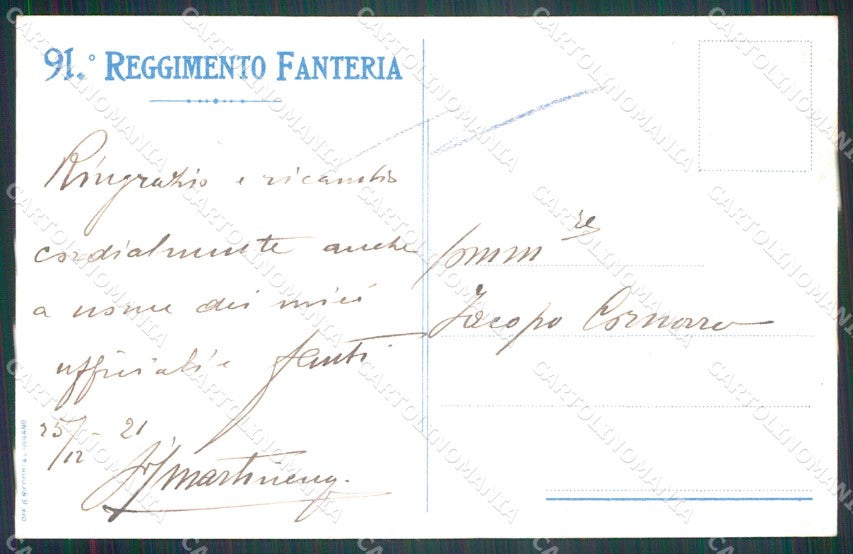 91.° REGGIMENTO FANTERIA
Ringrazio e ricambio
cordialmente anche
a nome dei miei
ufficiali e fanti
25/12 - 21
Martineng
Jacopo Cornaro
CARTOLINOMANIA